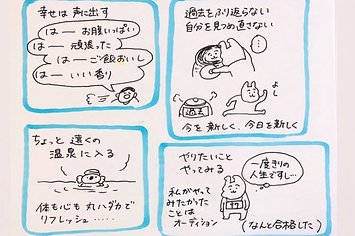 幸せは声に出す
はー お腹いっぱい
はー 頑張った
はー ご飯おいし
はー いい香り
過去をふり返らない
自分を見つめ直さない
…
過去
よし
今を新しく、今日を新しく
ちょっと遠くの
温泉に入る
体も心も丸ハダカで
リフレッシュ……
やりたいこと
やってみる
私がやって
みたかった
ことは
オーディション
一度きりの
人生ですし…
(なんと合格した)